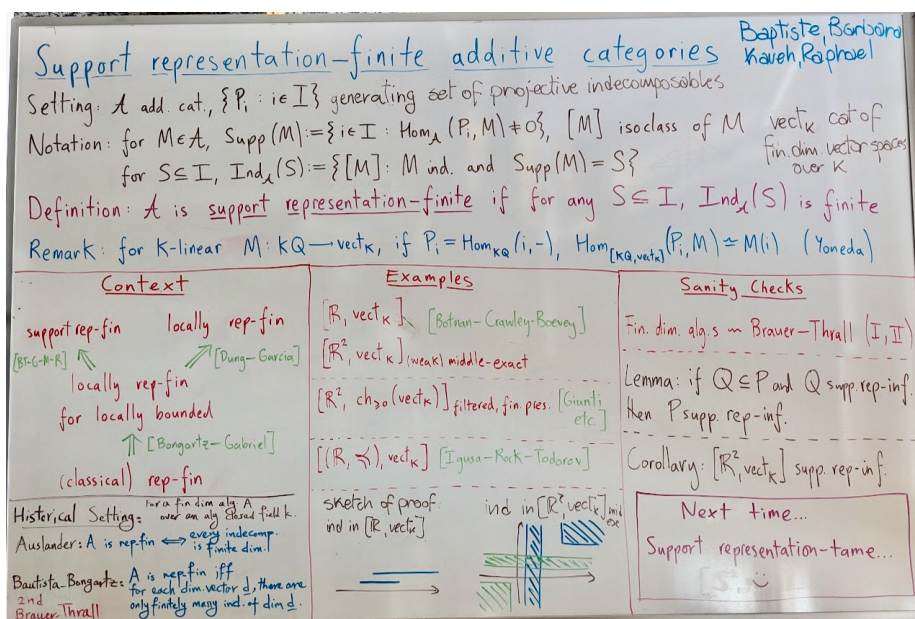 Support representation-finite additive categories
Baptiste, Barbara
Kaveh, Raphael
Setting: A add. cat., {Pi : i∈I} generating set of projective indecomposables
Notation: for M∈A, Supp(M):={i∈I : Hom_A(Pi,M)≠0}, [M] isoclass of M
for S⊆I, Ind_A(S):={[M]: M ind. and Supp(M)=S}
vect_K cat of
fin. dim. vector spaces
over K
Definition: A is support representation-finite if for any S⊆I, Ind_A(S) is finite
Remark: for K-linear M: KQ→vect_K, if Pi=Hom_KQ(i,-), Hom_[KQ,vect_K](Pi,M)≃M(i) (Yoneda)
Context
support rep-fin
locally rep-fin
[BT-G-M-R]
[Dung-Garcia]
locally rep-fin
for locally bounded
[Bongartz-Gabriel]
(classical) rep-fin
Historical Setting: For a fin dim alg A
over an alg closed field k.
Auslander: A is rep-fin ⟺ every indecomp.
is finite dim.l
Bautista-Bongartz: A is rep-fin iff
for each dim. vector d, there are
only finitely many ind. of dim d.
2nd
Brauer-Thrall
Examples
[R, vect_K] [Botnan-Crawley-Boevey]
[R², vect_K] (weak) middle-exact
[R², ch≥0(vect_K)] filtered, fin. pres. [Giunti,
etc.]
[(R, ≼), vect_K] [Igusa-Rock-Todorov]
sketch of proof:
ind in [R, vect_K]
ind in [R², vect_K] mid
exe
Sanity Checks
Fin. dim. alg.s ~ Brauer-Thrall (I, II)
Lemma: if Q⊆P and Q supp. rep-inf.
then P supp. rep-inf.
Corollary: [R², vect_K] supp. rep-inf.
Next time...
Support representation-tame...